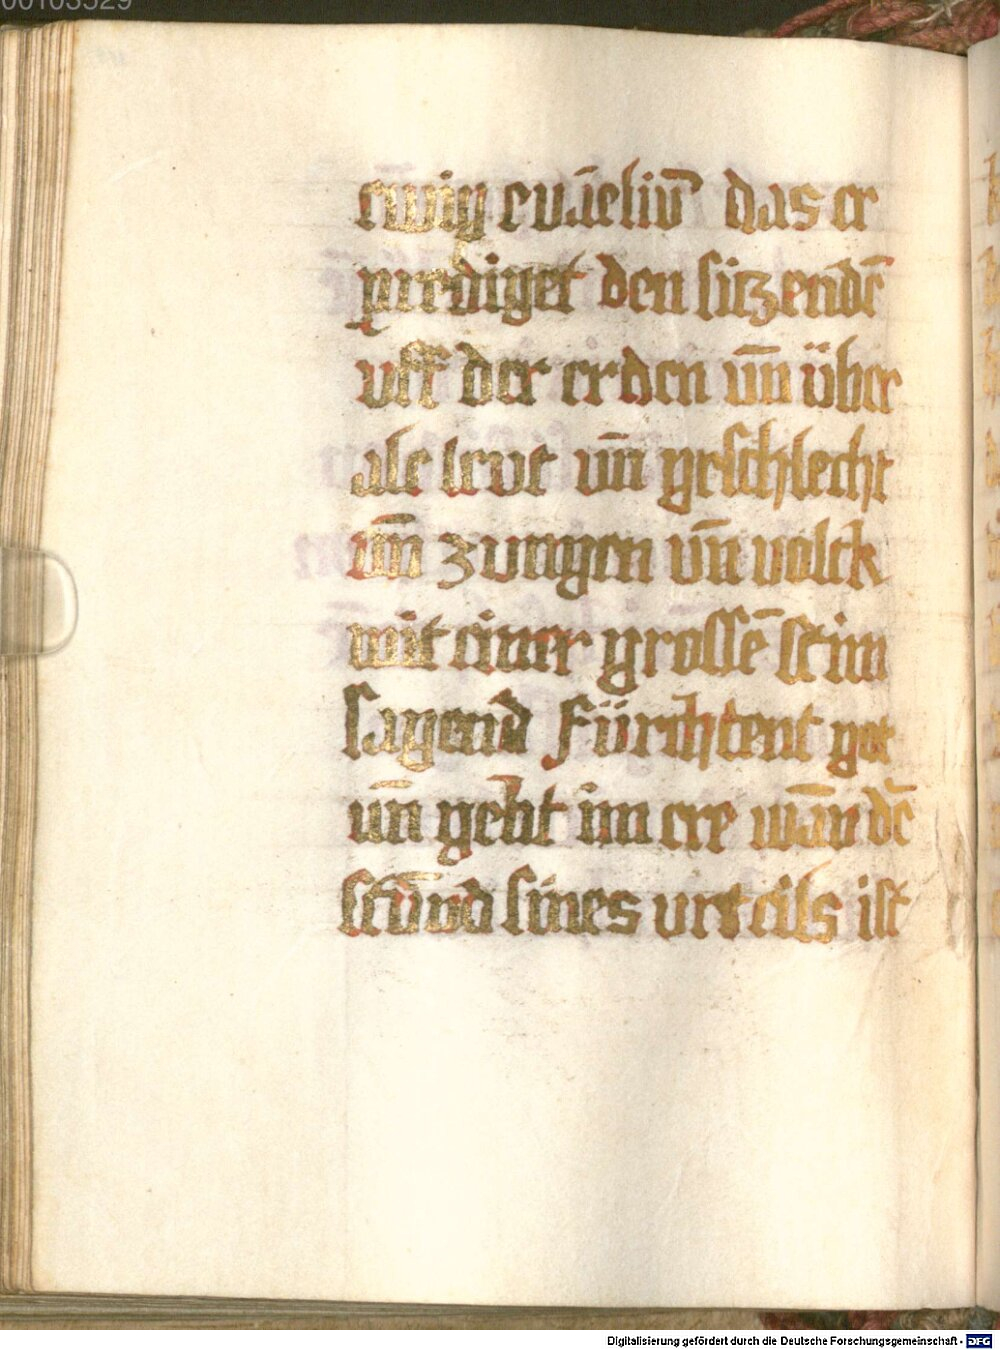 00103529
ewig evāeliū das er
prediget den sitzendē
uff der erden uñ über
ale leut uñ geschlecht
uñ zungen uñ volck
mit einer grossē stim
sagend fürchtent got
uñ gebt im ere wān dē
stūnd sines urteils ist
Digitalisierung gefördert durch die Deutsche Forschungsgemeinschaft - DFG